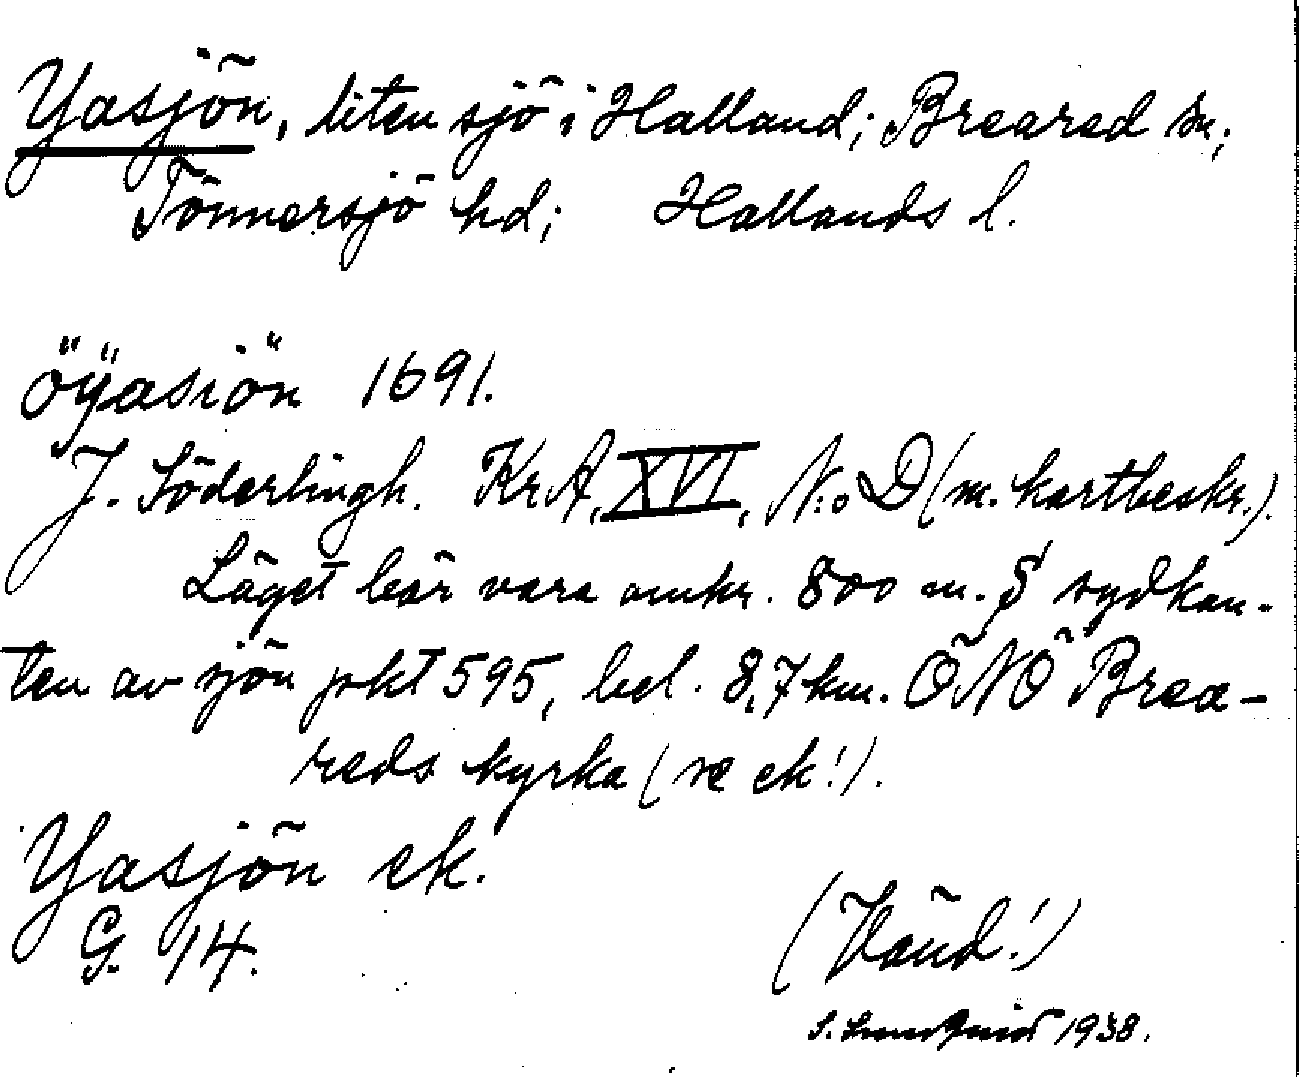 Yasjön, liten sjö i Halland; Breared sn;
Tönnersjö hd; Hallands l.
öÿasiön 1691.
J. Söderlingh. KrA, XVI, N:o D (m. kartbeskr.).
Läget bör vara omkr. 800 m. S sydkan-
ten av sjön pkt 595, bel. 8,7 km. ÖNÖ Brea-
reds kyrka (se ek!).
Yasjön ek.
G. 14.
(Vänd!)
S. Lundquist 1938.